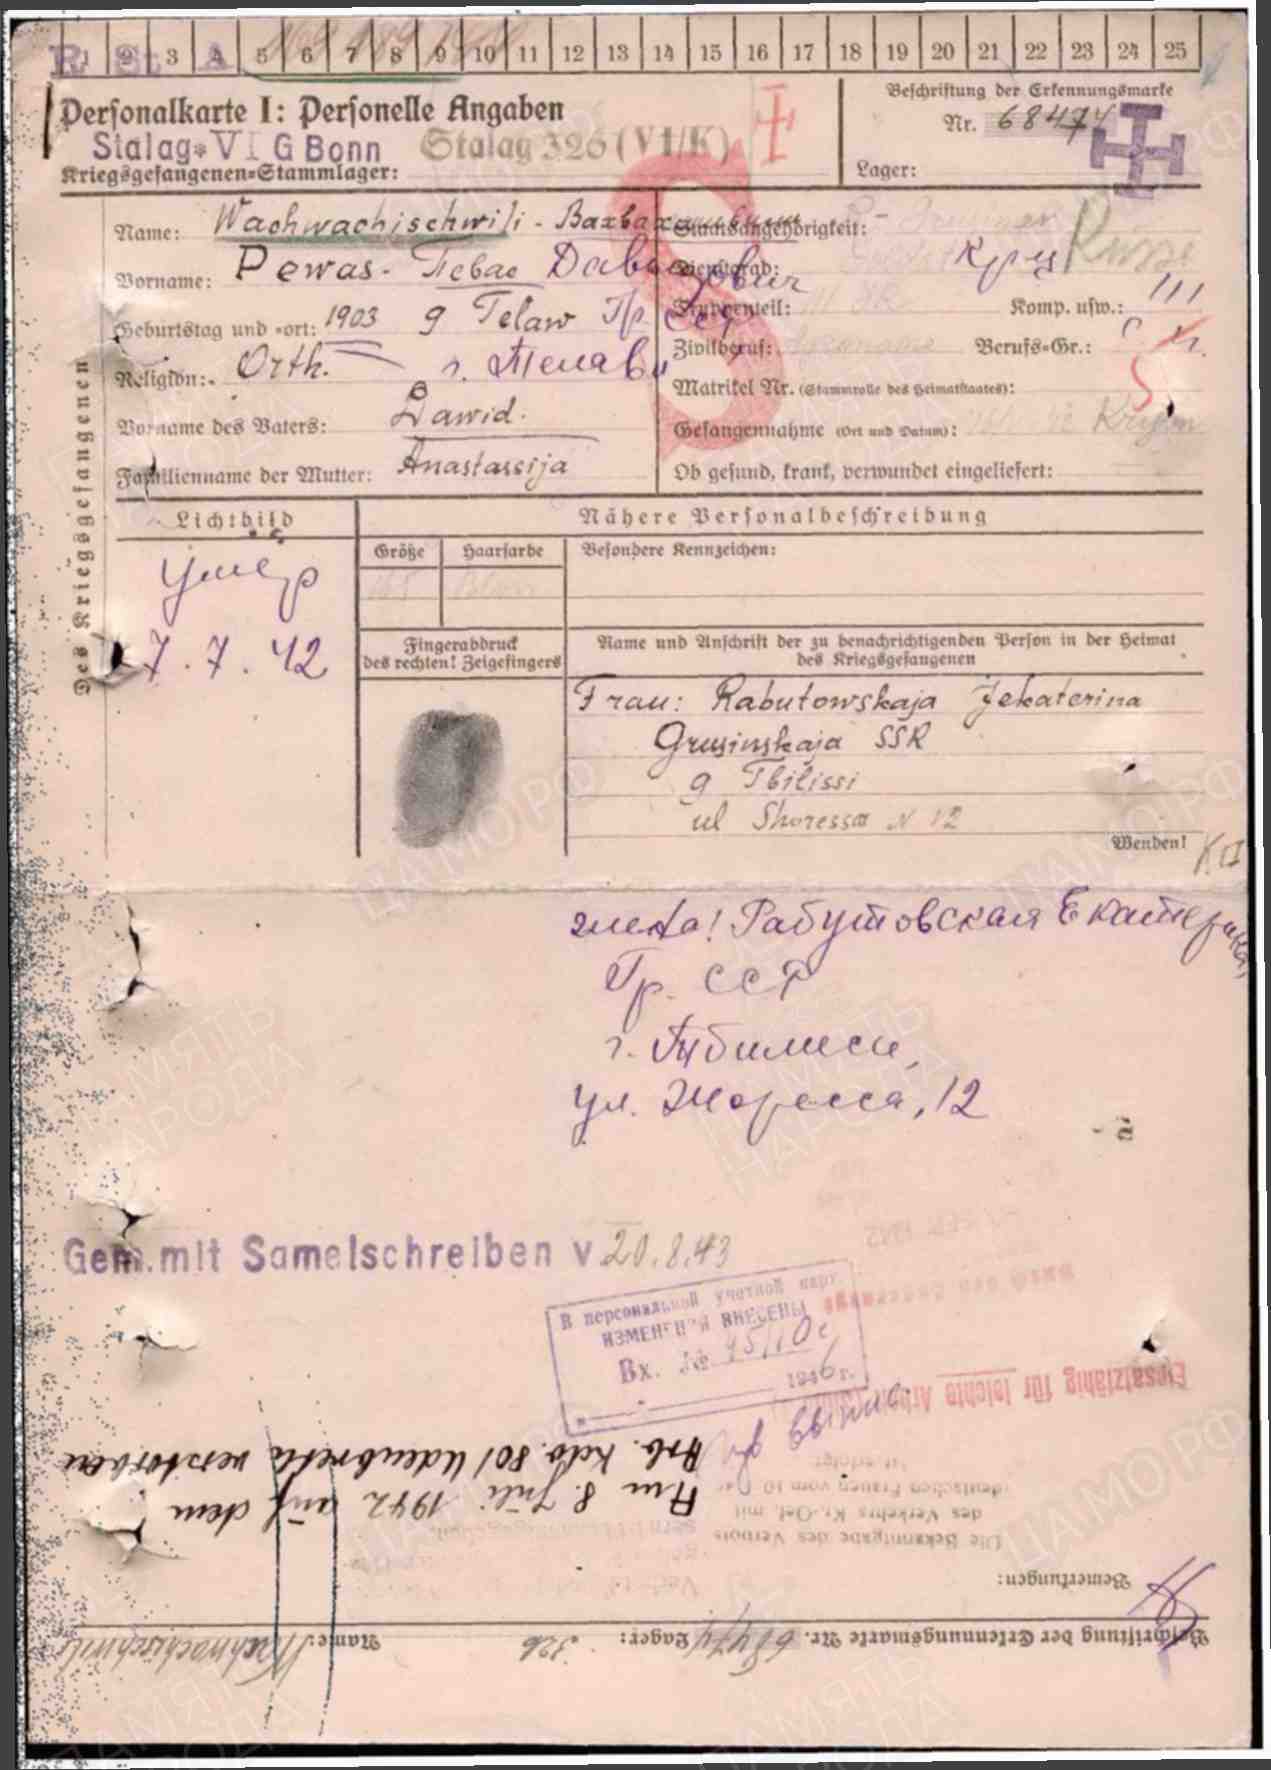 R. St A
1 2 3 4 5 6 7 8 9 10 11 12 13 14 15 16 17 18 19 20 21 22 23 24 25
Personalkarte I: Personelle Angaben
Stalag VI G Bonn Stalag 326 (VI/K)
Kriegsgefangenen-Stammlager:
Beschriftung der Erkennungsmarke
Nr. 68474
Lager:
Des Kriegsgefangenen
Name: Wachwachischwili - Вахвахишвили
Vorname: Pewas - Певас Давидович
Geburtstag und -ort: 1903 g Telaw Гр. ССР
Religion: Orth. г. Телави
Vorname des Vaters: Dawid.
Familienname der Mutter: Anastassija
Staatsangehörigkeit: Russe
Dienstgrad: Круз
Truppenteil: Komp. usw.: 111
Zivilberuf: Berufs-Gr.:
Matrikel Nr. (Stammrolle des Heimatstaates):
Gefangennahme (Ort und Datum): Krym
Ob gesund, krank, verwundet eingeliefert:
S
Lichtbild
умер
7.7.42
Nähere Personalbeschreibung
Größe Haarfarbe Besondere Kennzeichen:
165
Fingerabdruck
des rechten! Zeigefingers
Name und Anschrift der zu benachrichtigenden Person in der Heimat
des Kriegsgefangenen
Frau: Rabutowskaja Jekaterina
Grusinskaja SSR
g Tbilissi
ul Shoressa N 12
Wenden!
жена! Рабутовская Екатерина,
Гр. ССР
г. Тбилиси,
ул. Жоресса, 12
Gem. mit Samelschreiben v 20.8.43
В персональной учетной карт.
ИЗМЕНЕНИЯ ВНЕСЕНЫ
Вх. №
1946 г.
Beschriftung der Erkennungsmarke Nr. 68474 Lager: 326 Name: Wachwachischwili
Bemerkungen:
Die Bekanntgabe des Verbots
des Verkehrs Kr.-Gef. mit
deutschen Frauen vom 10
ist erfolgt.
Am 8. Juli 1942 auf dem
Arb. Kdo. 801 Udenbreth verstorben
Einsatzfähig für leichte Arbeit
ПАМЯТЬ НАРОДА
ЦАМО РФ